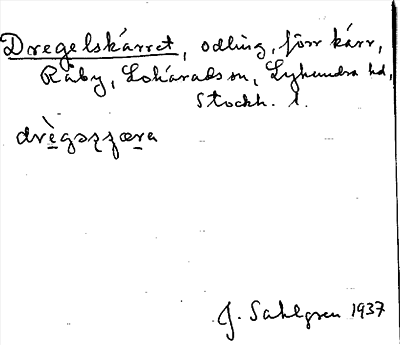 Dregelskärret, odling, förr kärr,
Råby, Lohärads sn, Lyhundra hd,
Stockh. l.
drègəszæra
J. Sahlgren 1937